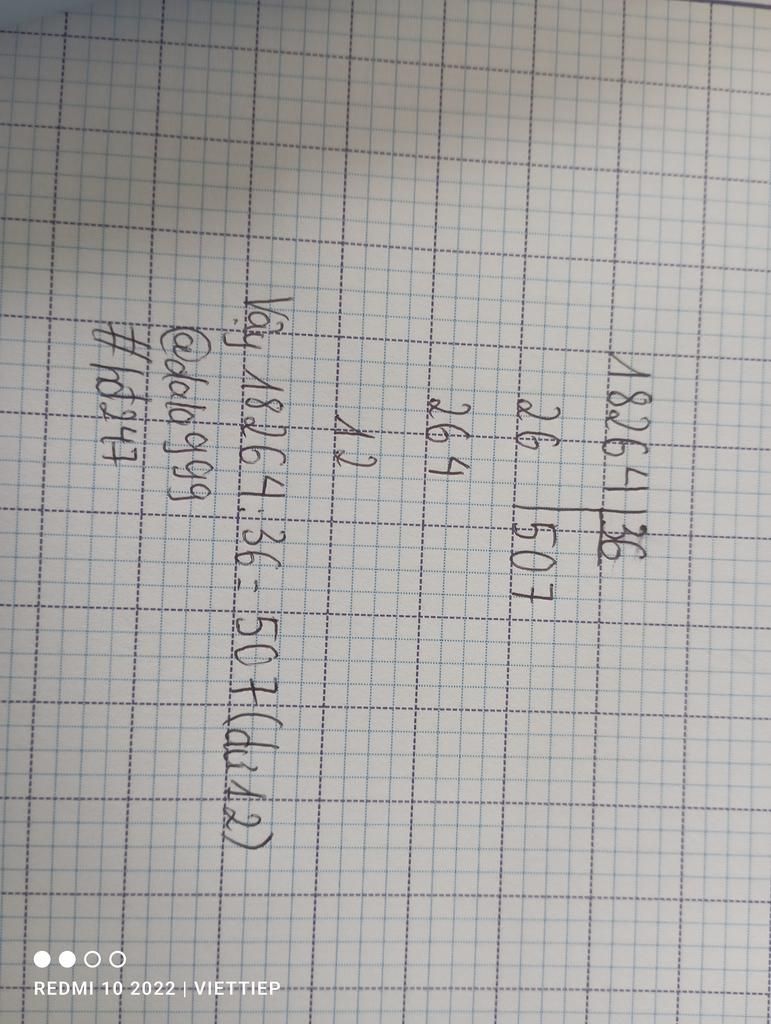 18264 36
26 507
264
12
Vậy 18264:36= 507(dư 12)
#hd247
REDMI 10 2022 | VIETTIEP